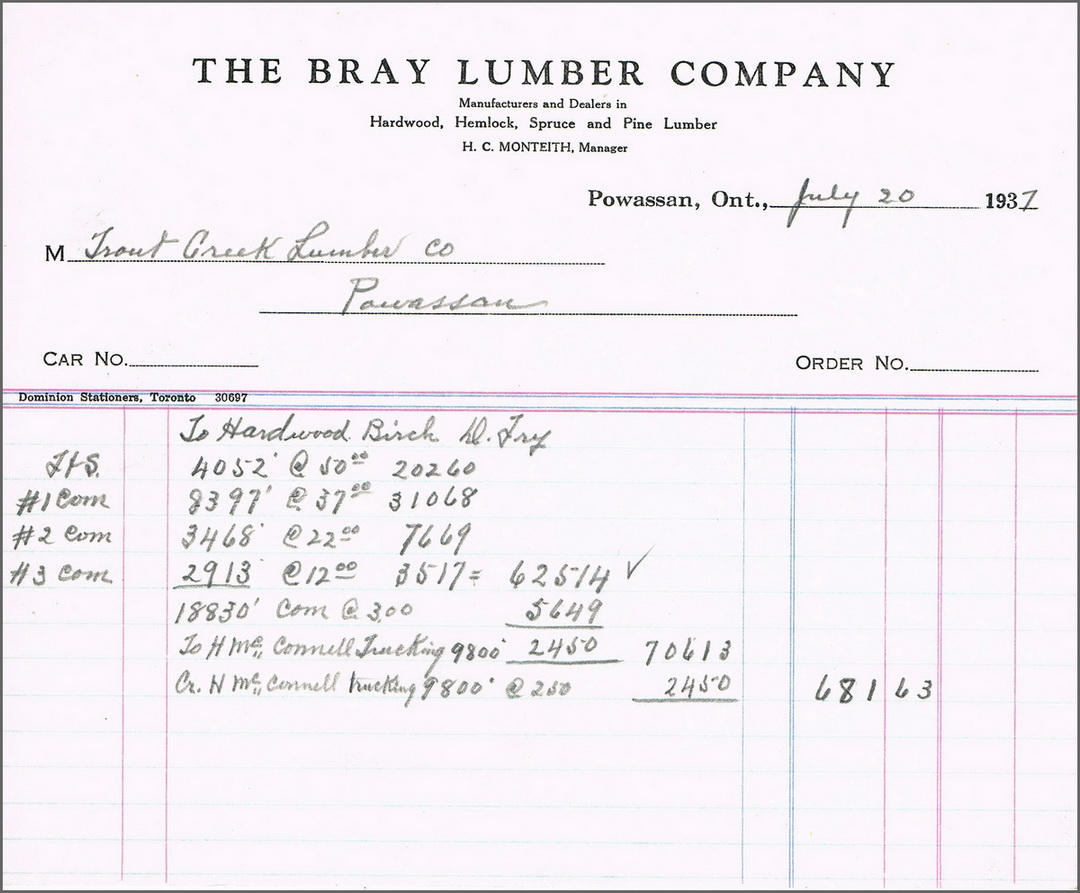 THE BRAY LUMBER COMPANY
Manufacturers and Dealers in
Hardwood, Hemlock, Spruce and Pine Lumber
H. C. MONTEITH, Manager
Powassan, Ont., July 20 1937
M Trout Creek Lumber Co
Powassan
CAR NO. ORDER NO.
Dominion Stationers, Toronto 30697
To Hardwood Birch D. Fry
4052' @ 50⁰⁰ 20260
#1 Com 8397' @ 37⁰⁰ 31068
#2 Com 3468' @ 22⁰⁰ 7669
#3 Com 2913 @ 12⁰⁰ 3517 = 62514 ✓
18830' Com @ 3.00 5649
To H McConnell Trucking 9800' 2450 70613
Cr. H McConnell trucking 9800' @ 250 2450 681 63